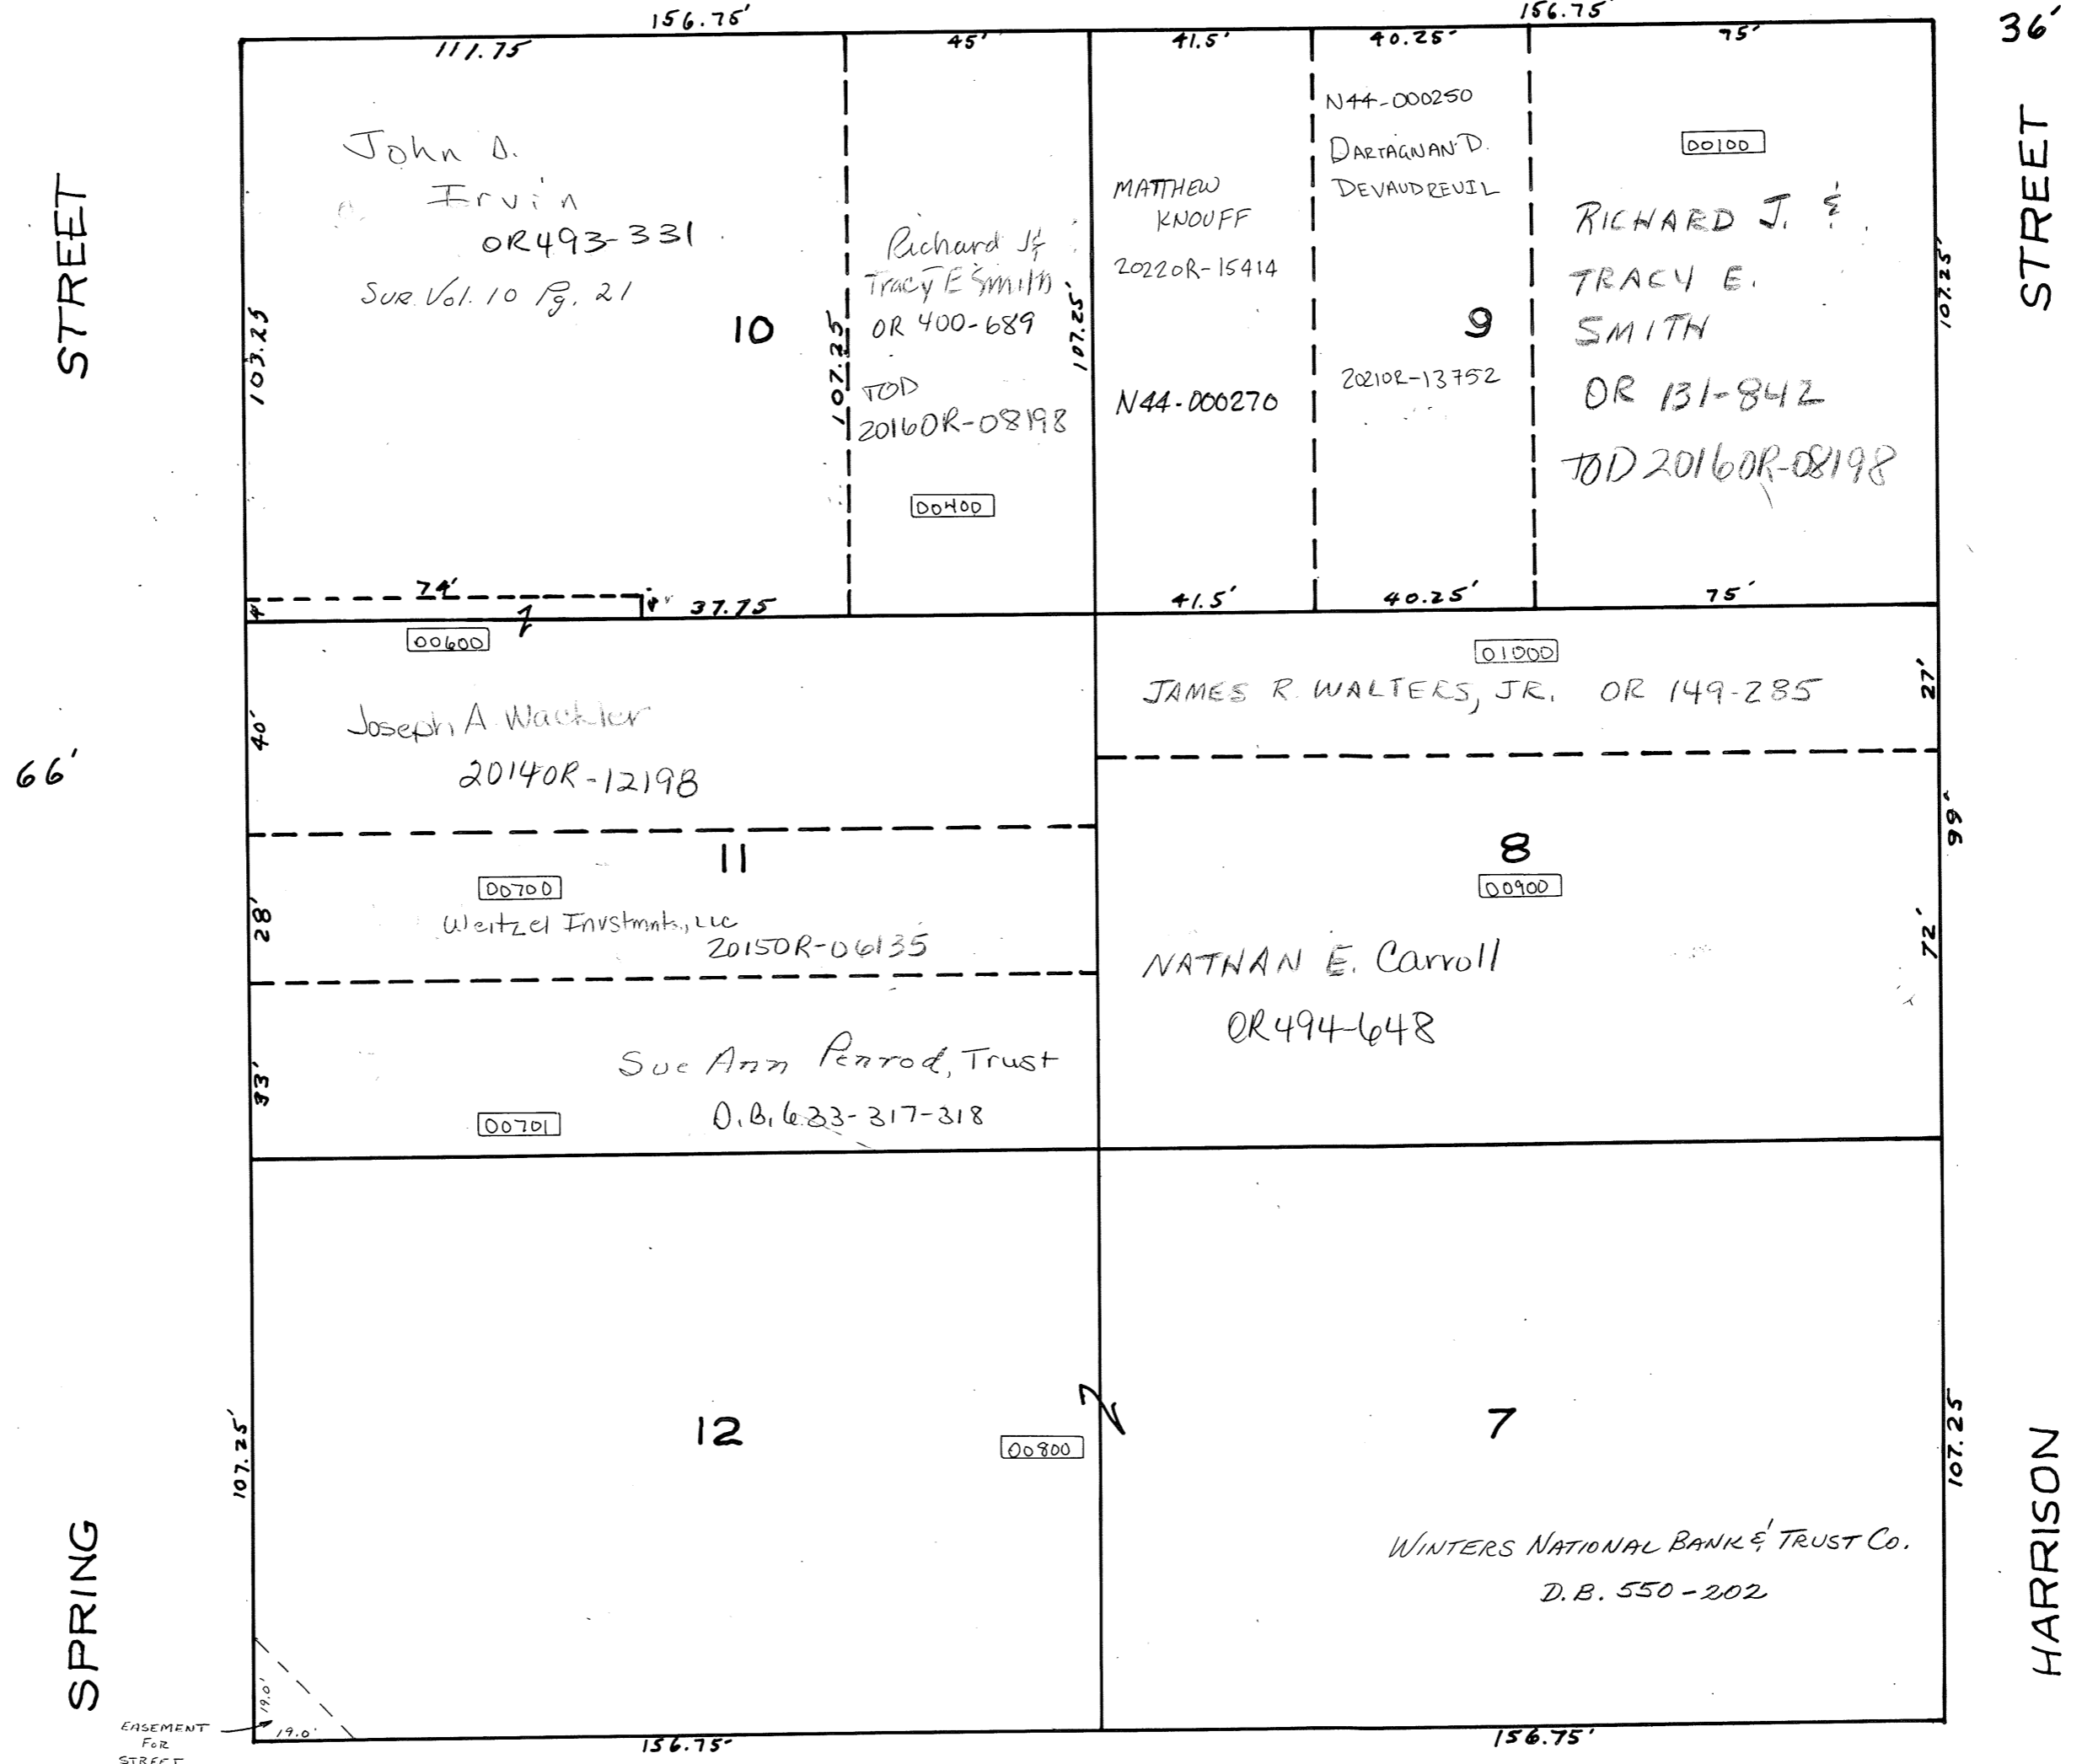 156.75'
156.75'
36'
111.75
45'
41.5'
40.25'
75'
STREET
STREET
John D.
Irvin
OR493-331
SUR. Vol. 10 Pg. 21
103.25
10
107.25
Richard J &
Tracy E Smith
OR 400-689
TOD
2016OR-08198
00400
107.25'
MATTHEW
KNOUFF
2022OR-15414
N44-000270
N44-000250
DARTAGNAN D.
DEVAUDREUIL
9
2021OR-13752
00100
RICHARD J. &
TRACY E.
SMITH
OR 131-842
TOD 2016OR-08198
107.25'
74'
4'
37.75
41.5'
40.25'
75'
00600
Joseph A. Wackler
2014OR-12198
40'
66'
01000
JAMES R. WALTERS, JR. OR 149-285
27'
11
00700
Weitzel Invstmnts., LLC
2015OR-06135
28'
8
00900
NATHAN E. Carroll
OR494-648
99'
72'
Sue Ann Penrod, Trust
D.B. 633-317-318
00701
33'
12
00800
107.25'
7
107.25
WINTERS NATIONAL BANK & TRUST CO.
D.B. 550-202
SPRING
HARRISON
19.0'
19.0'
EASEMENT
FOR
STREET
156.75'
156.75'